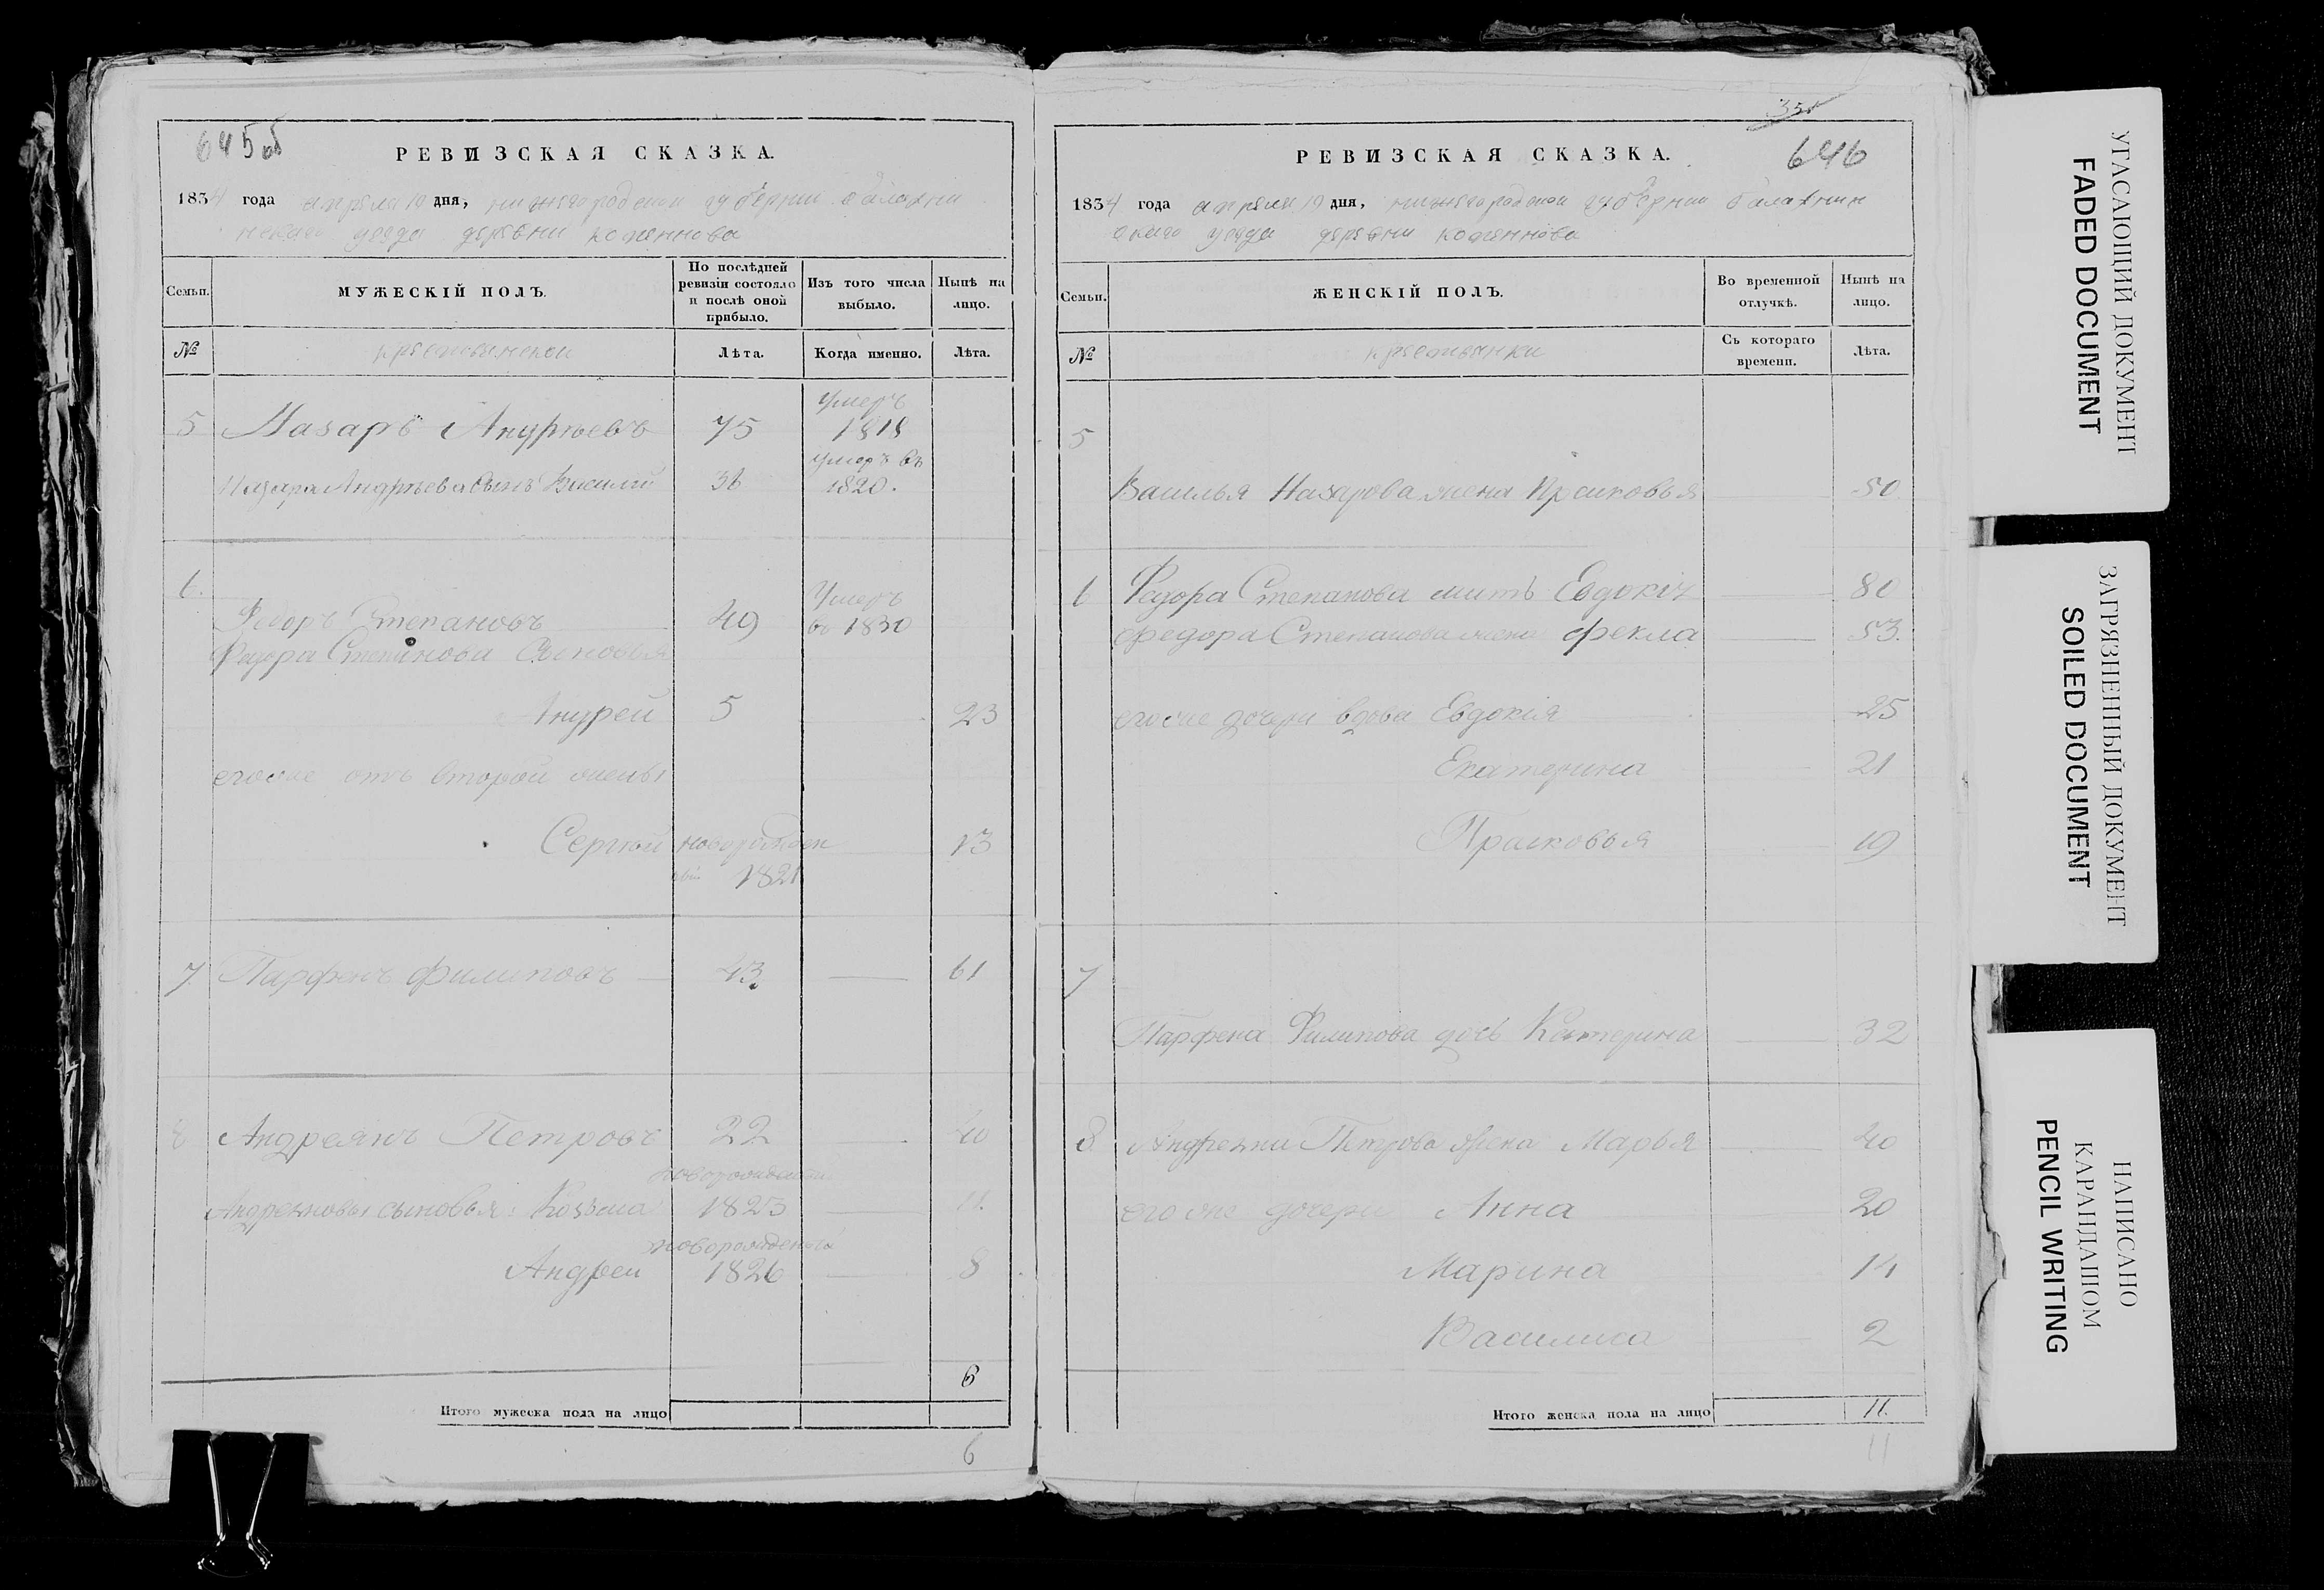 645об
РЕВИЗСКАЯ СКАЗКА.
1834 года апреля 10 дня, нижегородской губернии балахни
нскаго уезда деревни коженнова
Семьи.
МУЖЕСКІЙ ПОЛЪ.
По послѣдней ревизіи состояло и послѣ оной прибыло.
Изъ того числа выбыло.
Нынѣ на лицо.
№
Лѣта.
Когда именно.
Лѣта.
5 Назаръ Андрѣевъ 75 Умеръ 1818
Назара Андрѣева сынъ Василий 36 умеръ въ 1820.
6. Федоръ Степановъ 49 Умеръ въ 1830
Федора Степанова Сыновья
Андрей 5 23
егоже отъ второй жены
Сергѣй новорожден
ный 1821 13
7 Парфенъ Филиповъ 43 61
8 Андреянъ Петровъ 22 40
Андреяновы сыновья: Козма новорожденный 1823 11.
Андреи новорожденый 1826 8
6
Итого мужеска пола на лицо
6
35
646
РЕВИЗСКАЯ СКАЗКА.
1834 года апреля 10 дня, нижегородской губернии балахнин
скаго уезда деревни коженнова
Семьи.
ЖЕНСКІЙ ПОЛЪ.
Во временной отлучкѣ.
Нынѣ на лицо.
№
крестьянки
Съ котораго времени.
Лѣта.
5
Василья Назарова жена Прасковья 50
6 Федора Степанова мать Евдокія 80
Федора Степанова жена фекла 53.
егоже дочери вдова Евдокія 25
Екатерина 21
Прасковья 19
7
Парфена Филипова дочь Катерина 32
8 Андреяна Петрова жена Марья 40
его же дочери Анна 20
Марина 14
Василиса 2
Итого женска пола на лицо 11.
11
УГАСАЮЩИЙ ДОКУМЕНТ
FADED DOCUMENT
ЗАГРЯЗНЕННЫЙ ДОКУМЕНТ
SOILED DOCUMENT
НАПИСАНО
КАРАНДАШОМ
PENCIL WRITING